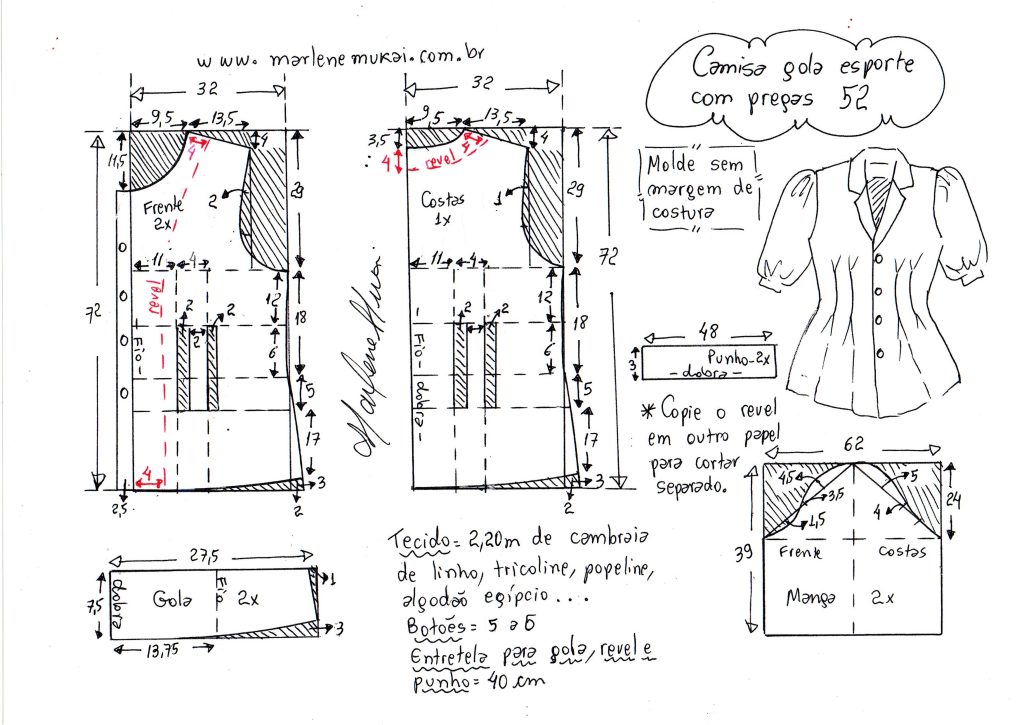 www.marlenemukai.com.br
Camisa gola esporte
com pregas 52
Molde sem
margem de
costura
32
9,5 13,5
11,5
4
4
29
2
Frente
2x
11 4
revel
72
2 2
2
12
18
6
Fio
5
17
4
3
2,5
2
32
9,5 13,5
3,5
4
4
revel
5
29
1
Costas
1x
11 4
72
2 2
2
12
18
6
Fio - dobra -
5
17
3
2
Marlene Mukai
48
3
Punho-2x
- dobra -
* Copie o revel
em outro papel
para cortar
separado.
62
4,5 5
3,5
1,5 4
24
39
Frente Costas
Manga 2x
27,5
7,5
dobra
Gola
Fio
2x
1
3
13,75
Tecido= 2,20m de cambraia
de linho, tricoline, popeline,
algodão egípcio...
Botões= 5 a 6
Entretela para gola, revel e
punho= 40 cm